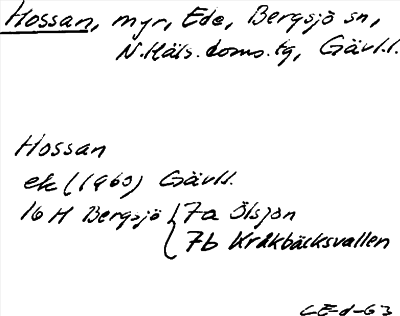 Hossan, myr, Ede, Bergsjö sn,
N.Häls. doms.tg, Gävl.l.
Hossan
ek (1963) Gävll.
16 H Bergsjö 7a Ölsjön
7b Kråkbäcksvallen
CE-d-63